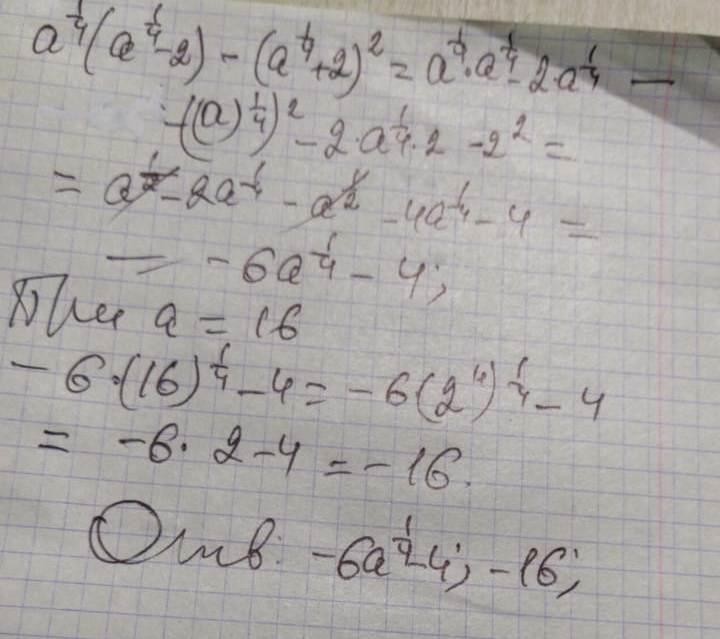 a^{1/4}(a^{1/4}-2) - (a^{1/4}+2)^2 = a^{1/4}·a^{1/4} - 2·a^{1/4} -
-((a)^{1/4})^2 - 2·a^{1/4}·2 - 2^2 =
= a^{1/2} - 2a^{1/4} - a^{1/2} - 4a^{1/4} - 4 =
= -6a^{1/4} - 4;
При a = 16
-6·(16)^{1/4} - 4 = -6(2^4)^{1/4} - 4
= -6·2 - 4 = -16.
Отв: -6a^{1/4} - 4; -16;